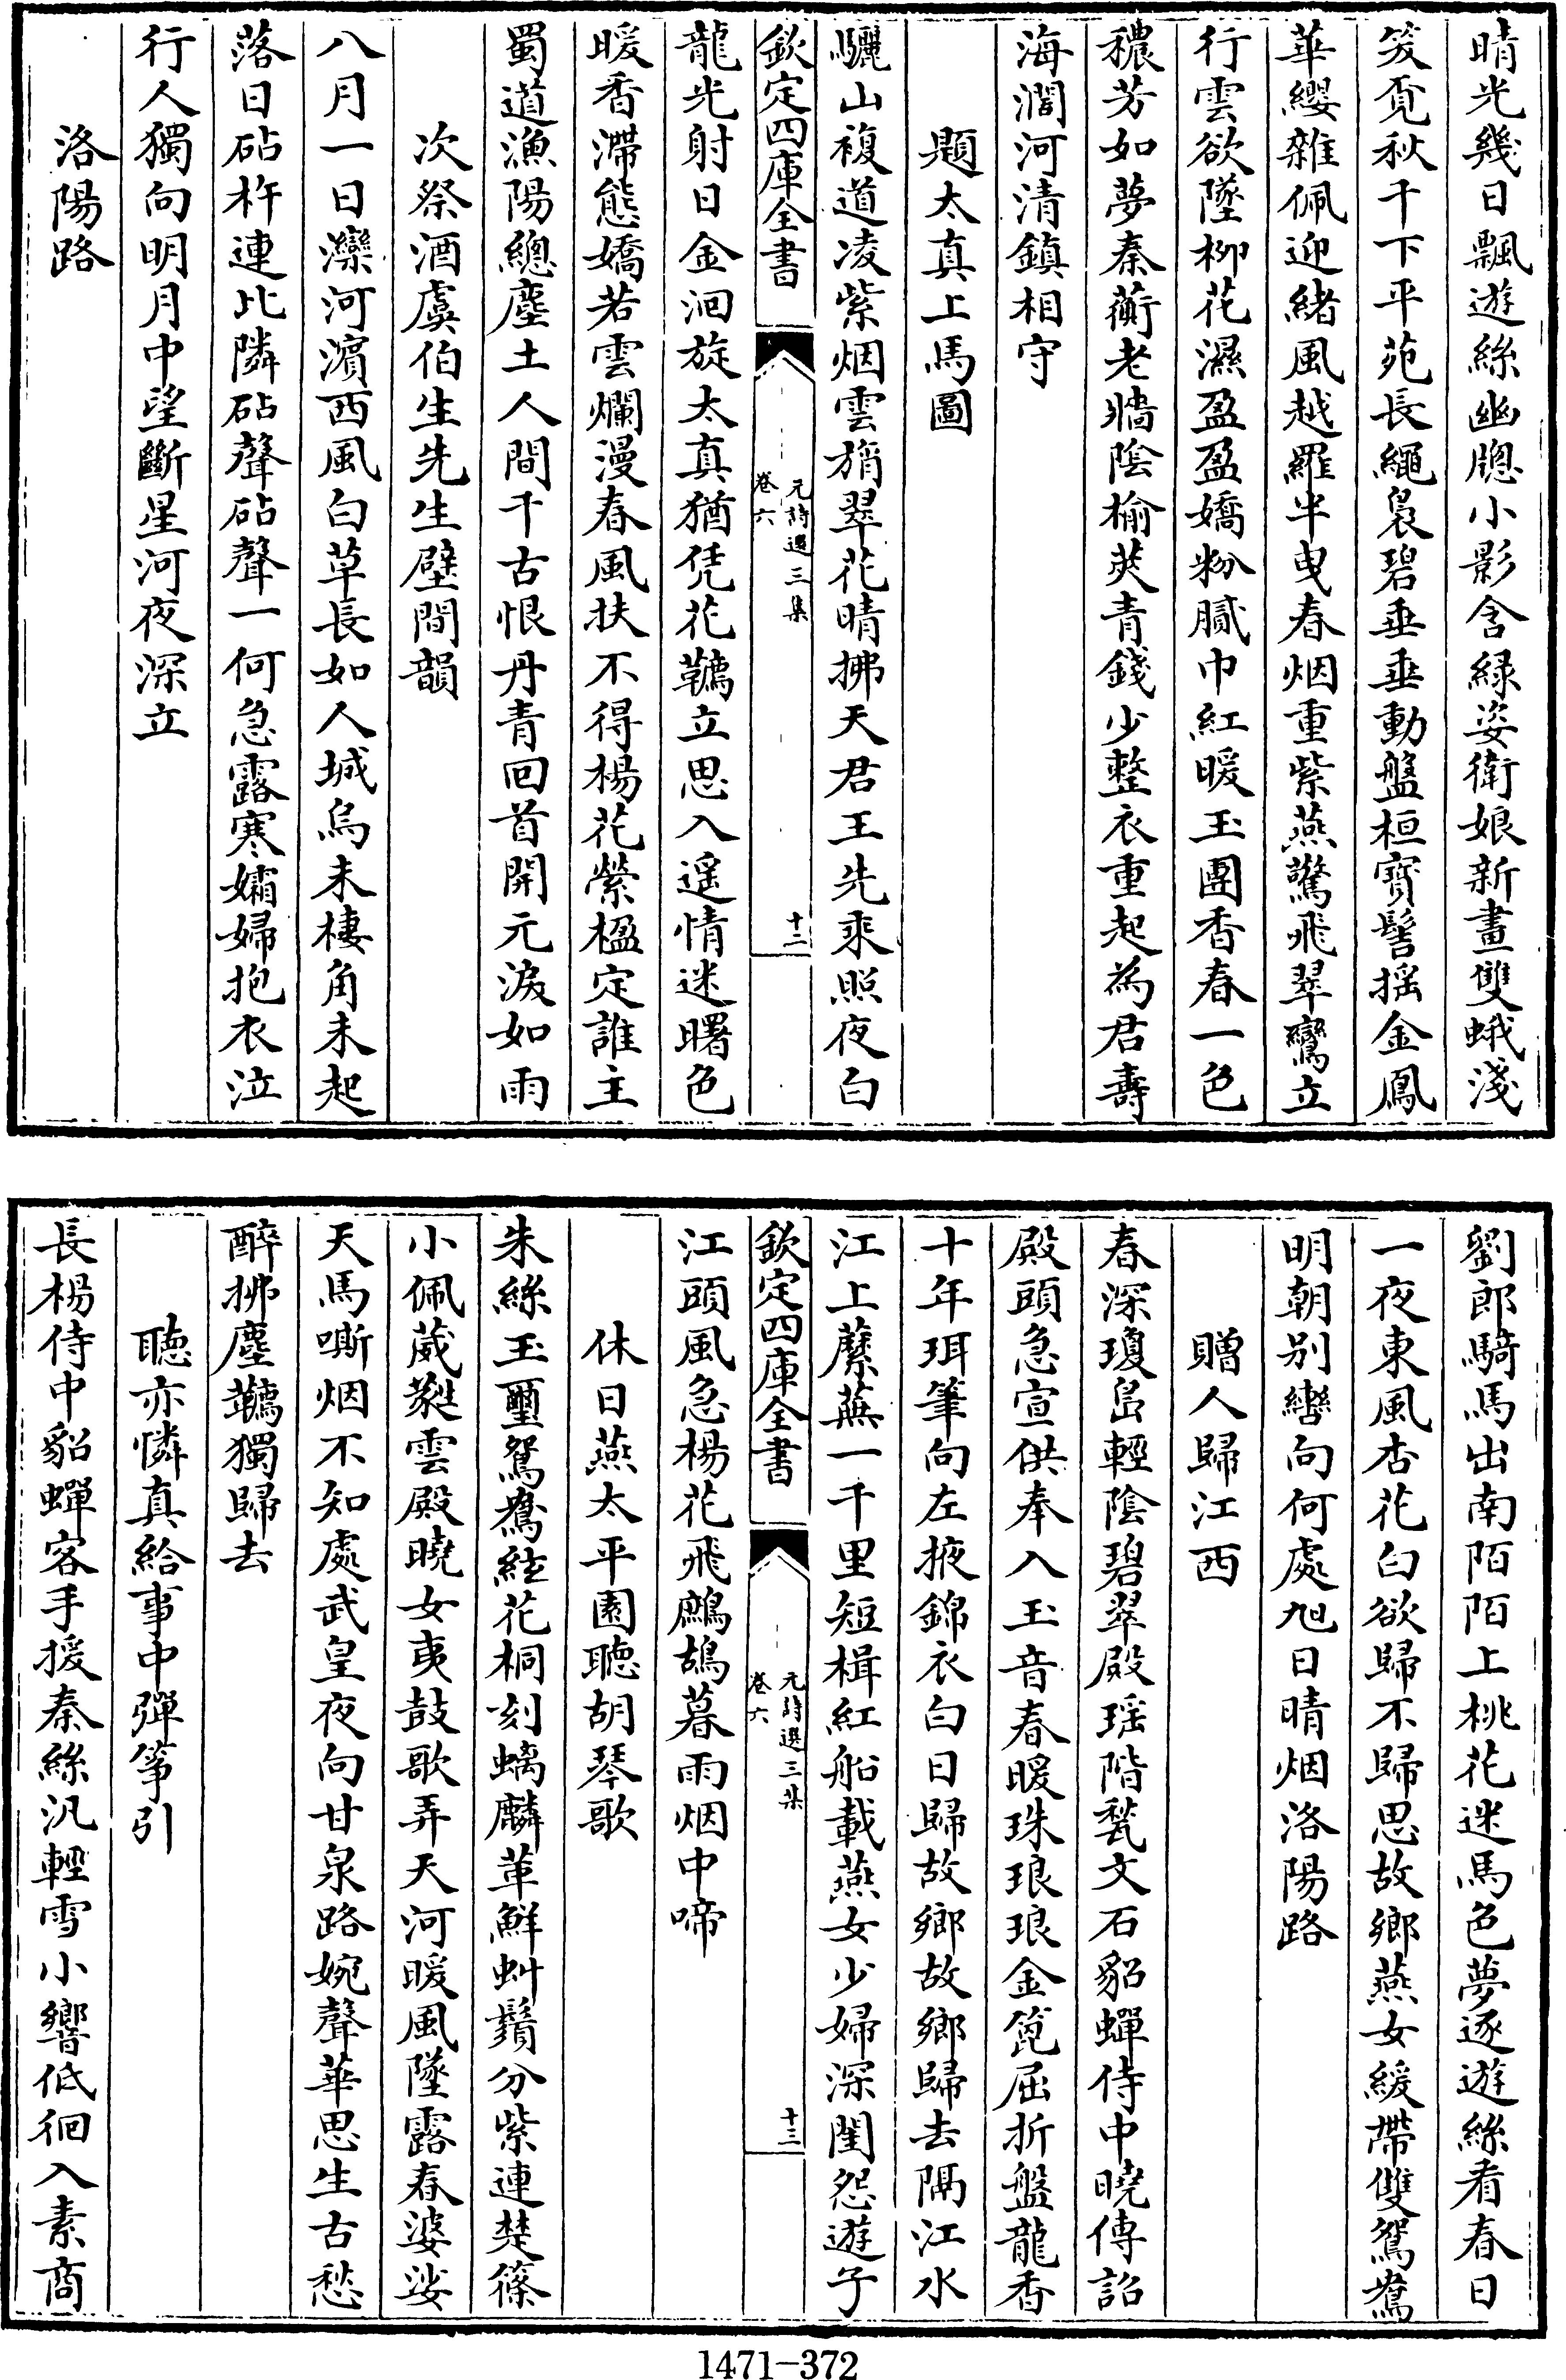 晴光幾日飄遊絲幽牕小影含緑姿衛娘新畫雙蛾淺
笑覔秋千下平苑長繩裊碧垂垂動盤桓寳髻揺金鳳
華纓雜佩迎緒風越羅半曳春烟重紫燕驚飛翠鸞立
行雲欲墜柳花濕盈盈嬌粉膩巾紅暖玉團香春一色
穠芳如夢秦蘅老牆隂榆莢青錢少整衣重起為君壽
海濶河清鎮相守
題太真上馬圖
驪山複道凌紫烟雲旓翠花晴拂天君王先乘照夜白
欽定四庫全書
元詩選三集
卷六
十二
龍光射日金洄旋太真猶凭花韉立思入遥情迷曙色
暖香滯態嬌若雲爛漫春風扶不得楊花縈楹定誰主
蜀道漁陽總塵土人間千古恨丹青回首開元淚如雨
次祭酒虞伯生先生壁間韻
八月一日灤河濵西風白草長如人城烏未棲角未起
落日砧杵連比隣砧聲砧聲一何急露寒孀婦抱衣泣
行人獨向明月中望斷星河夜深立
洛陽路
劉郎騎馬出南陌陌上桃花迷馬色夢逐遊絲看春日
一夜東風杏花白欲歸不歸思故鄉燕女緩帶雙鴛鴦
明朝别轡向何處旭日晴烟洛陽路
贈人歸江西
春深瓊島輕隂碧翠殿瑶階甃文石貂蟬侍中曉傳詔
殿頭急宣供奉入玉音春暖珠琅琅金箆屈折盤龍香
十年珥筆向左掖錦衣白日歸故鄉故鄉歸去隔江水
江上蘼蕪一千里短楫紅船載燕女少婦深閨怨遊子
欽定四庫全書
元詩選三集
卷六
十三
江頭風急楊花飛鷓鴣暮雨烟中啼
休日燕太平園聽胡琴歌
朱絲玉璽鴛鴦絃花桐刻螭麟革鮮虯鬚分紫連楚篠
小佩葳蕤雲殿曉女夷鼓歌弄天河暖風墜露春婆娑
天馬嘶烟不知處武皇夜向甘泉路婉聲華思生古愁
醉拂塵韉獨歸去
聽亦憐真給事中彈筝引
長楊侍中貂蟬客手援秦絲汎輕雪小響低徊入素商
1471-372